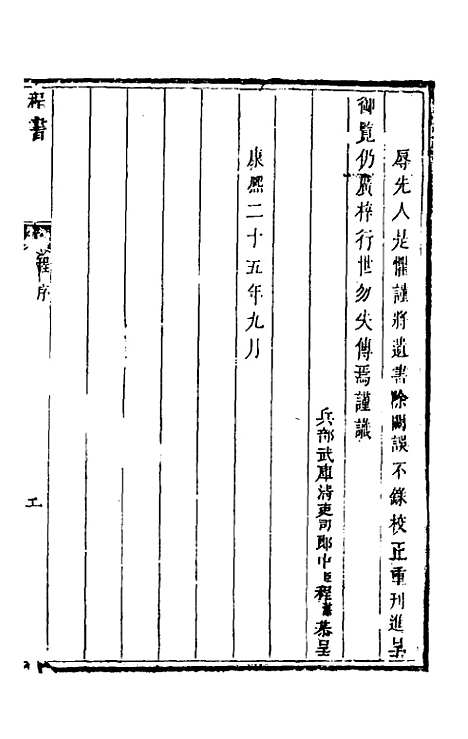 辱先人是懼謹將遺書除闕誤不錄校正重刊進呈
御覽仍廣梓行世勿失傳焉謹識
兵部武庫清吏司郎中臣程
恭呈
康熙二十五年九月
程書
程序